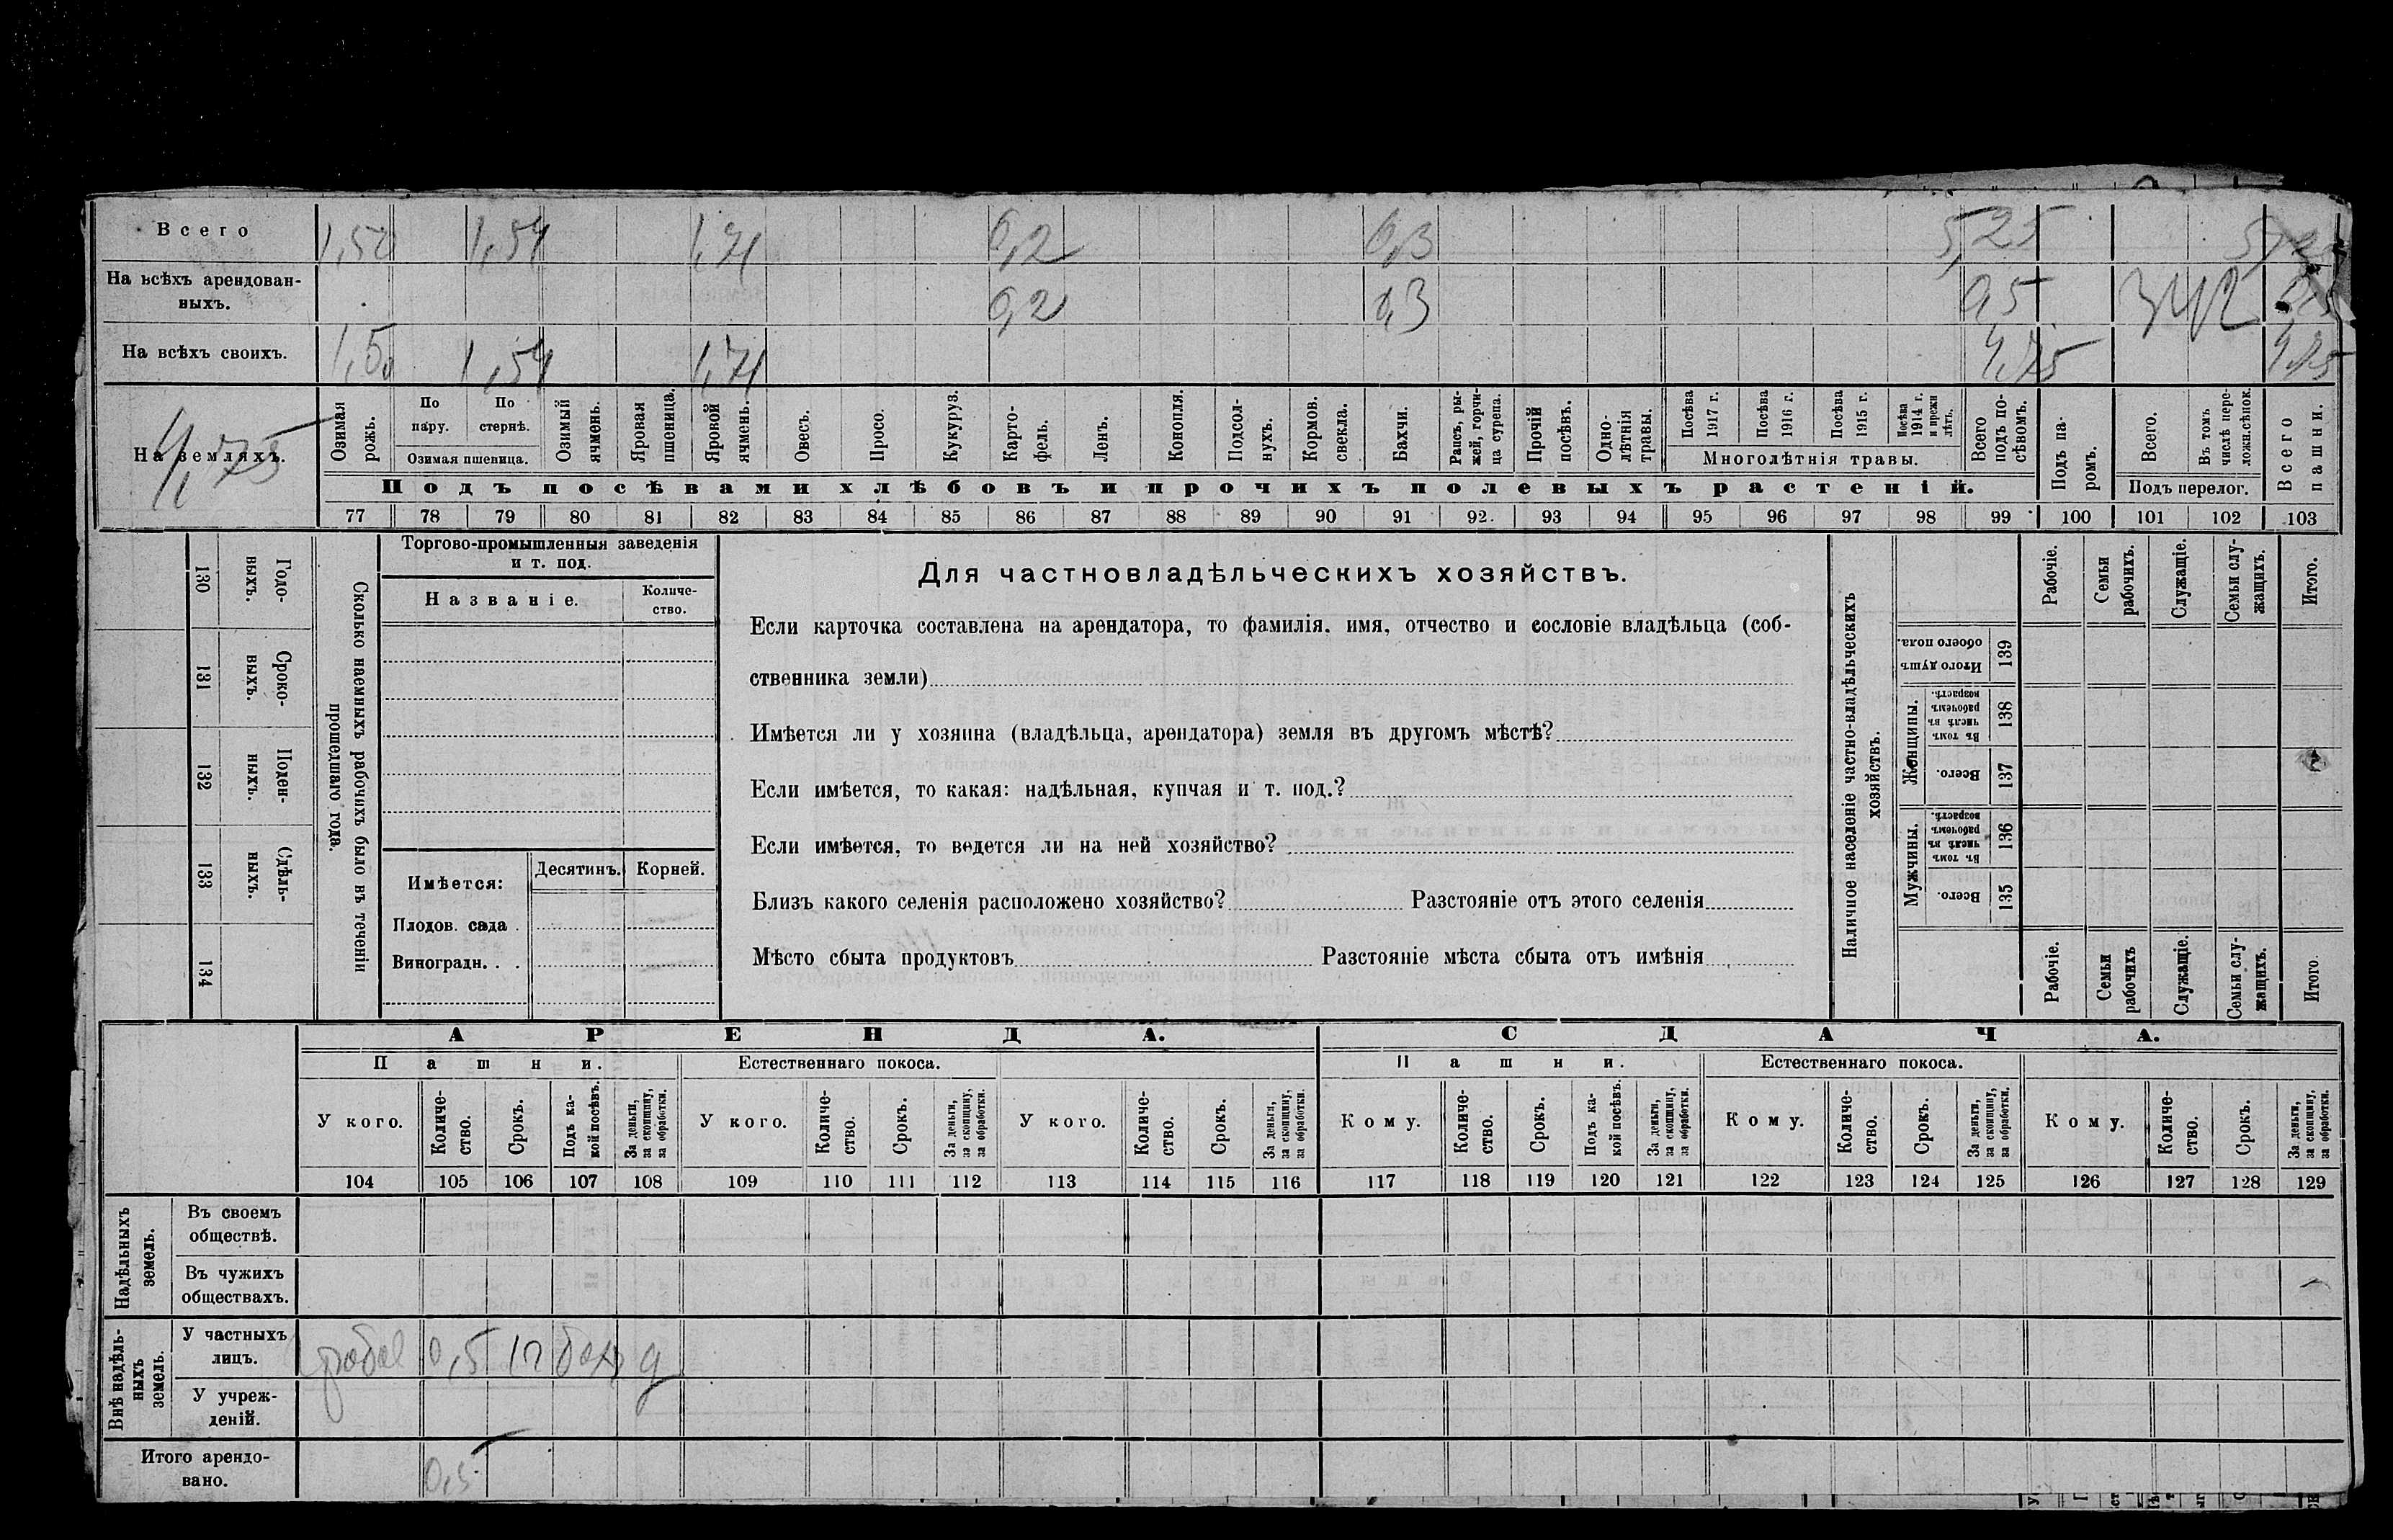 Всего 1,50 1,54 1,71 0,2 0,3 5,25
На всѣхъ арендован-
ныхъ. 0,2 0,3 0,5
На всѣхъ своихъ. 1,50 1,54 1,71 4,75 4,75
На земляхъ. 4,75
Озимая рожь.
По пару.
По стернѣ.
Озимая пшевица.
Озимый ячмень.
Яровая пшеница.
Яровой ячмень.
Овесъ.
Просо.
Кукуруз.
Карто-
фель.
Ленъ.
Конопля.
Подсол-
нухъ.
Кормов. свекла.
Бахчи.
Рапсъ, ры-
жей, горчи-
ца сурепа.
Прочій посѣвъ.
Одно-
лѣтнія травы.
Посѣва 1917 г.
Посѣва 1916 г.
Посѣва 1915 г.
Посѣва 1914 г. и прежн лѣтъ.
Многолѣтнія травы.
Всего подъ по-
сѣвомъ.
Подъ па-
ромъ.
Всего.
Въ томъ числѣ пере-
ложн.сѣнок.
Подъ перелог.
Всего пашни.
Подъ посѣвами хлѣбовъ и прочихъ полевыхъ растеній.
77 78 79 80 81 82 83 84 85 86 87 88 89 90 91 92 93 94 95 96 97 98 99 100 101 102 103
130 Годо-
выхъ.
131 Сроко-
выхъ.
132 Поден-
ныхъ.
133 Сдѣль-
ныхъ.
134
Сколько наемныхъ рабочихъ было въ теченіи
прошедшаго года.
Торгово-промышленныя заведенія
и т. под.
Названіе.
Количе-
ство.
Имѣется:
Десятинъ. Корней.
Плодов. сада .
Виноградн. . .
Для частновладѣльческихъ хозяйствъ.
Если карточка составлена на арендатора, то фамилія, имя, отчество и сословіе владѣльца (соб-
ственника земли)
Имѣется ли у хозяина (владѣльца, арендатора) земля въ другомъ мѣстѣ?
Если имѣется, то какая: надѣльная, купчая и т. под.?
Если имѣется, то ведется ли на ней хозяйство?
Близъ какого селенія расположено хозяйство? Разстояніе отъ этого селенія
Мѣсто сбыта продуктовъ Разстояніе мѣста сбыта отъ имѣнія
Наличное населеніе частно-владѣльческихъ
хозяйствъ.
Рабочіе.
Семьи рабочихъ.
Служащіе.
Семьи слу-
жащихъ.
Итого.
Итого душъ обоего пола. 139
Женщины.
Въ томъ числѣ въ рабочемъ возрастѣ. 138
Всего. 137
Мужчины.
Въ томъ числѣ въ рабочемъ возрастѣ. 136
Всего. 135
Рабочіе.
Семьи рабочихъ
Служащіе.
Семьи слу-
жащихъ.
Итого.
АРЕНДА. СДАЧА.
Пашни. Естественнаго покоса. Пашни. Естественнаго покоса.
У кого.
Количе-
ство.
Срокъ.
Подъ ка-
кой посѣвъ.
За деньги,
за скопщину,
за обработки.
У кого.
Количе-
ство.
Срокъ.
За деньги,
за скопщину,
за обработки.
У кого.
Количе-
ство.
Срокъ.
За деньги,
за скопщину,
за обработки.
Кому.
Количе-
ство.
Срокъ.
Подъ ка-
кой посѣвъ.
За деньги,
за скопщину,
за обработки.
Кому.
Количе-
ство.
Срокъ.
За деньги,
за скопщину,
за обработки.
Кому.
Количе-
ство.
Срокъ.
За деньги,
за скопщину,
за обработки.
104 105 106 107 108 109 110 111 112 113 114 115 116 117 118 119 120 121 122 123 124 125 126 127 128 129
Надѣльныхъ
земель.
Въ своемъ
обществѣ.
Въ чужихъ
обществахъ.
Внѣ надѣль-
ныхъ
земель.
У частныхъ
лицъ. 0,5 1 г бахч д
У учреж-
деній.
Итого арендо-
вано. 0,5